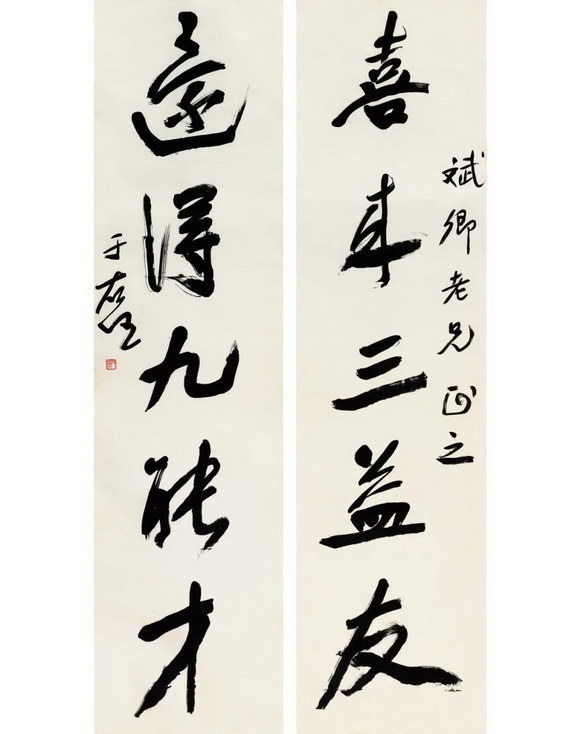 斌卿老兄正之
喜來三益友
還得九能才
于右任